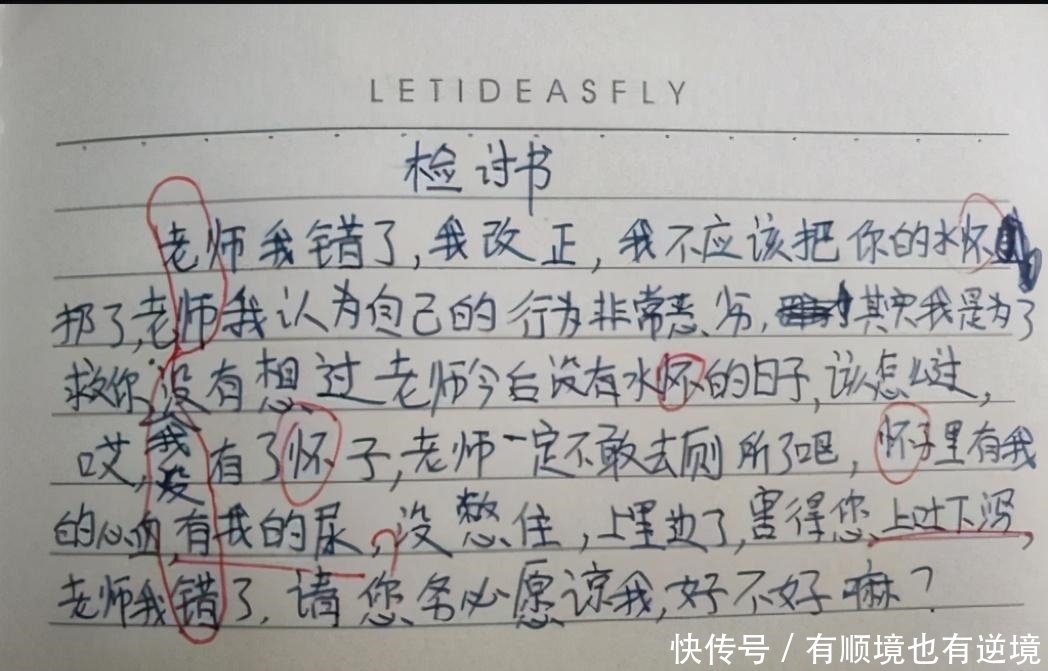 LETIDEASFLY
检讨书
老师我错了,我改正,我不应该把你的水怀
扔了,老师我认为自己的行为非常恶劣,其实我是为了
救你,没有想过老师今后没有水怀的日子,该怎么过,
哎,我没有了怀子,老师一定不敢去厕所了吧,怀子里有我
的心血,有我的尿,没憋住,上里边了,害得您上吐下泻,
老师我错了,请您务必愿谅我,好不好嘛?
快传号 / 有顺境也有逆境